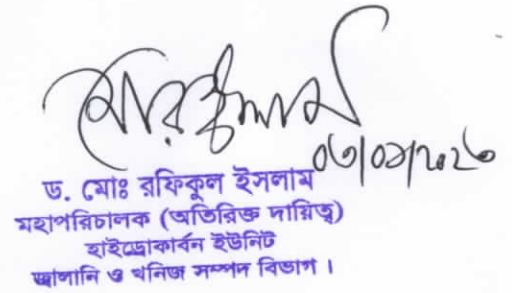 ড. মোঃ রফিকুল ইসলাম
মহাপরিচালক (অতিরিক্ত দায়িত্ব)
হাইড্রোকার্বন ইউনিট
জ্বালানি ও খনিজ সম্পদ বিভাগ।